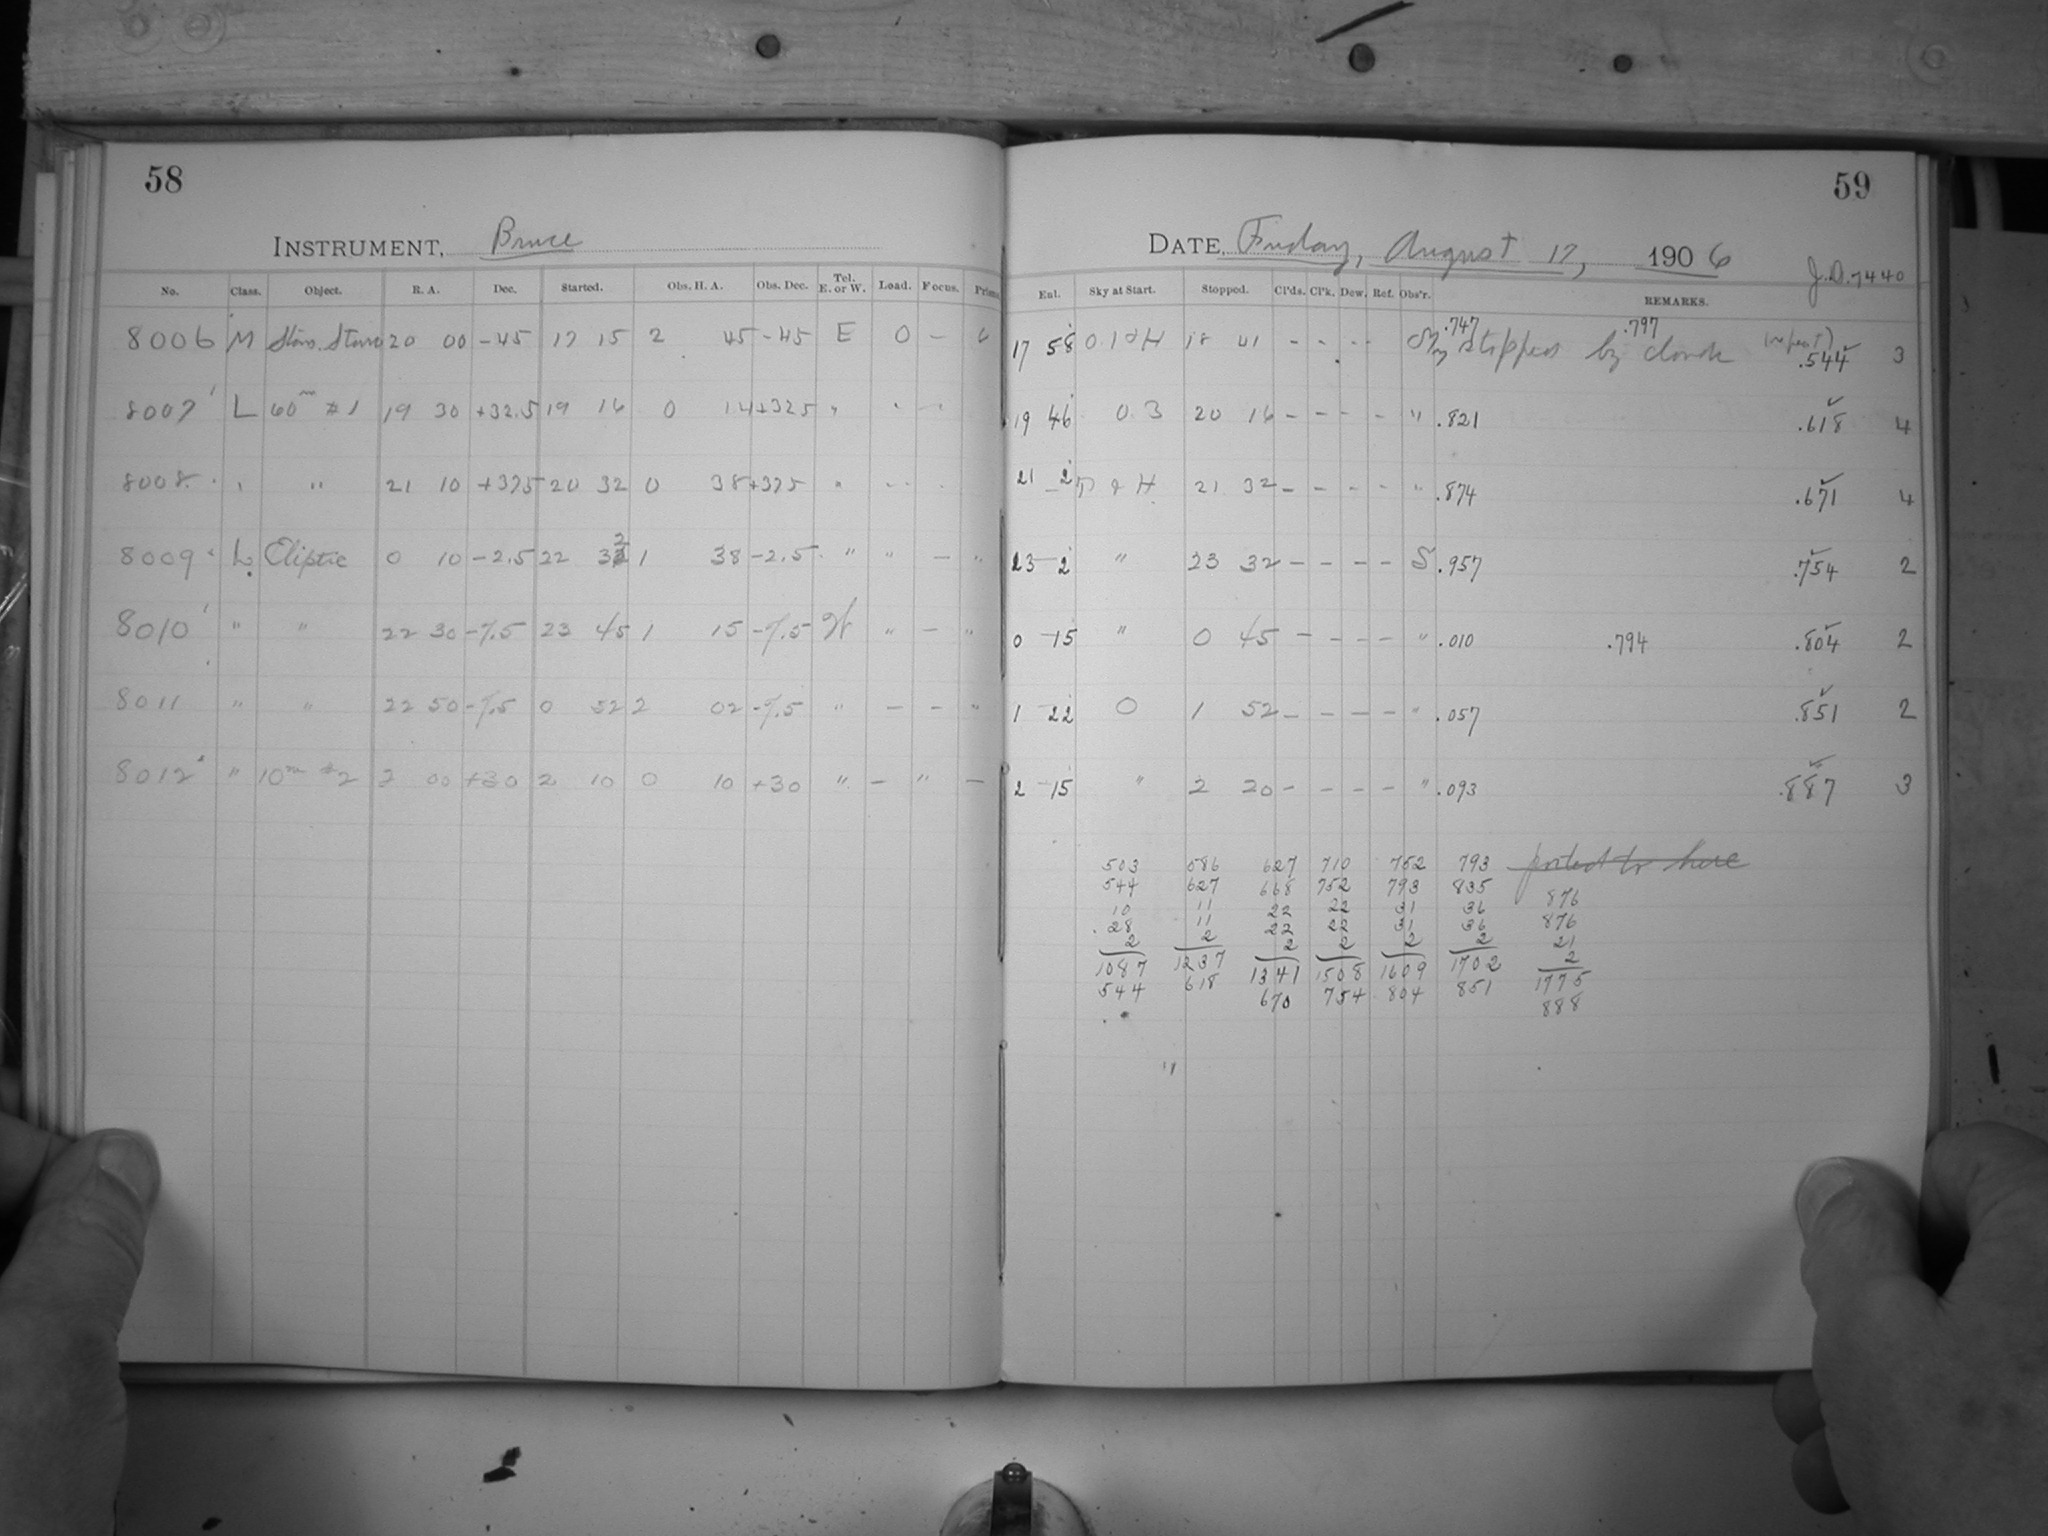 58
INSTRUMENT, Bruce
No. Class. Object. R. A. Dec. Started. Obs. H. A. Obs. Dec. Tel. E. or W. Load. Focus. Prism.
8006 M Stan. Stars 20 00 -45 17 15 2 45 -45 E 0 -
8007 L 60m #1 19 30 +32.5 19 16 0 14 +325 "
8008 " " 21 10 +375 20 32 0 38 +375 "
8009 L Ecliptic 0 10 -2.5 22 32 1 38 -2.5 " " - "
8010 " " 22 30 -7.5 23 45 1 15 -7.5 W " - "
8011 " " 22 50 -7.5 0 52 2 02 -7.5 " - - "
8012 " 10m #2 2 00 +30 2 10 0 10 +30 " - " -
59
DATE, Friday, August 17, 1906
J.D. 7440
Ent. Sky at Start. Stopped. Cl'ds. Cl'k. Dew. Ref. Obs'r. REMARKS.
17 58 18 01 - - - - .747 Stopped by clouds .797 (repeat) .544 3
19 46 0.3 20 16 - - - - " .821 .618 4
21 2 21 32 - - - - " .874 .671 4
23 2 " 23 32 - - - - S .957 .754 2
0 15 " 0 45 - - - - " .010 .794 .804 2
1 22 0 1 52 - - - - " .057 .851 2
2 15 " 2 20 - - - - " .093 .887 3
503 586 627 710 752 793 posted to here
544 627 668 752 793 835 876
10 11 22 22 31 36 876
28 11 22 22 31 36 21
2 2 2 2 2 2 2
1087 1237 1341 1508 1609 1702 1775
544 618 670 754 804 851 888